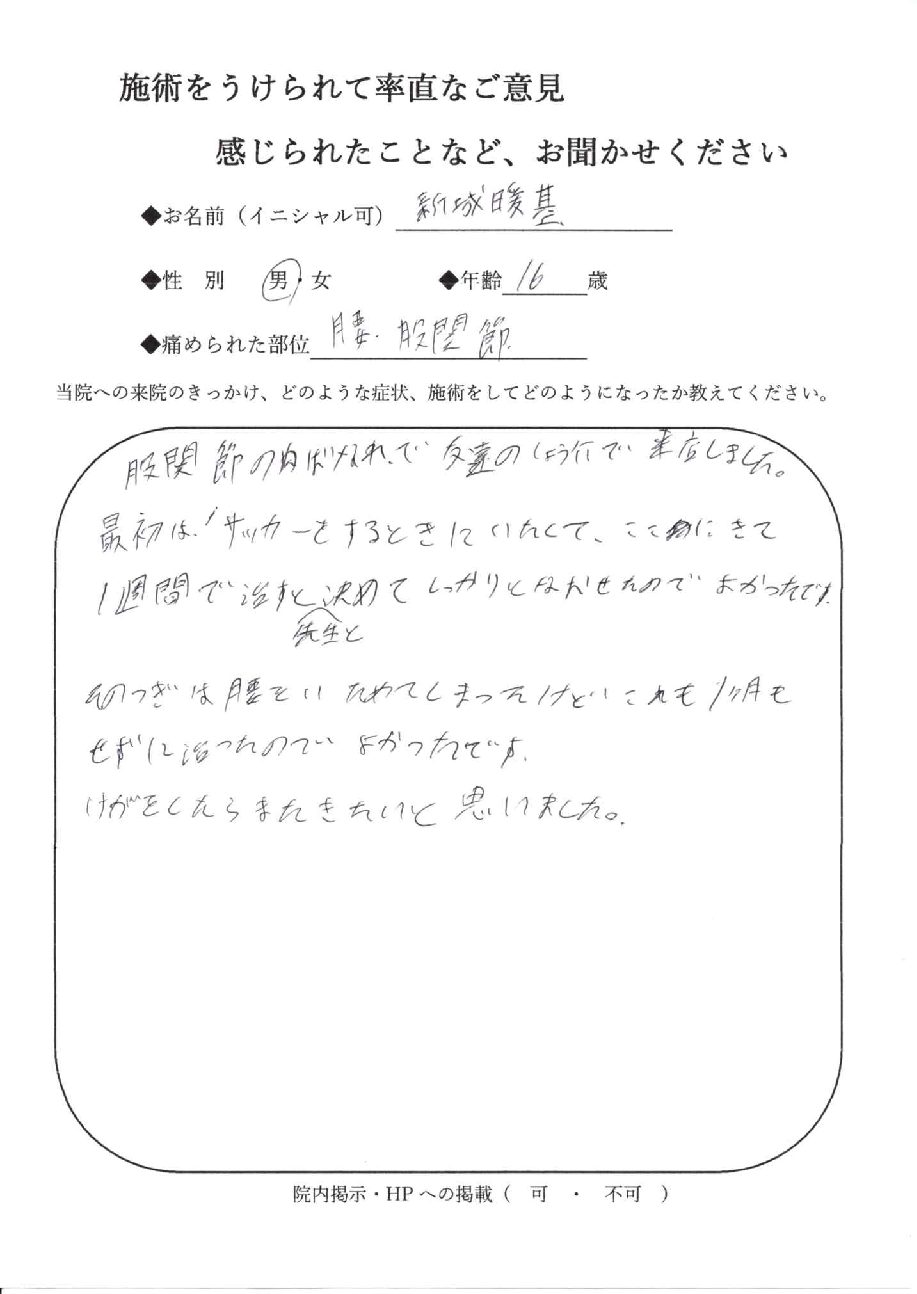 施術をうけられて率直なご意見
感じられたことなど、お聞かせください
◆お名前(イニシャル可) 新城暖基
◆性 別 男・女 ◆年齢 16 歳
◆痛められた部位 腰・股関節
当院への来院のきっかけ、どのような症状、施術をしてどのようになったか教えてください。
股関節の肉ばなれで 友達のしょうかいで 来店しました。
最初は、サッカーをするときにいたくて、ここにきて
1週間で治すと決めてしっかりとなおせたのでよかったです。
先生と
そのつぎは腰をいためてしまったけどこれも1ヶ月も
せずに治ったのでよかったです。
けがをしたらまたきたいと思いました。
院内掲示・HPへの掲載( 可 ・ 不可 )